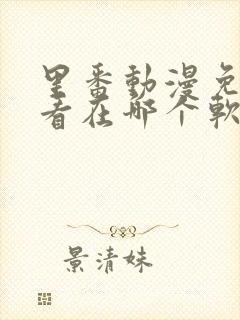 里番動漫免
看在哪个軟
景清妹